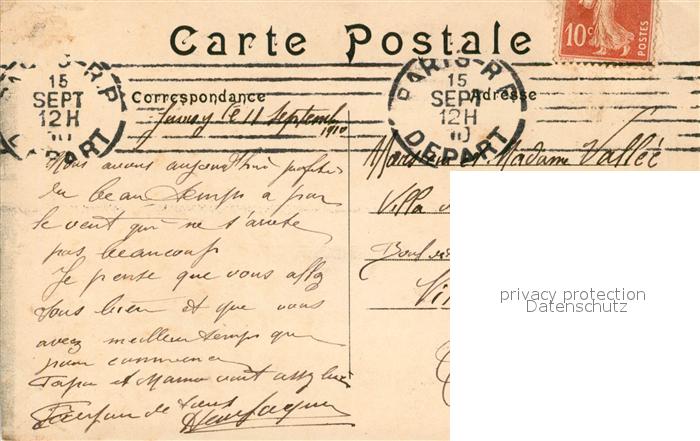 Carte Postale
10c
POSTES
PARIS-R.P
15
SEPT
12H
10
DEPART
PARIS-R.P
15
SEPT
12H
10
DEPART
Correspondance
Adresse
le 11 Septembre
1910
Nous avons aujourd'hui profité
du beau temps à part
le vent qui ne s'arrête
pas beaucoup
Je pense que vous allez
tous bien et que vous
avez meilleur temps que
pour commencer
Papa et Maman vont assez bien
de tous
Monsieur et Madame Vallée
Villa
privacy protection
Datenschutz